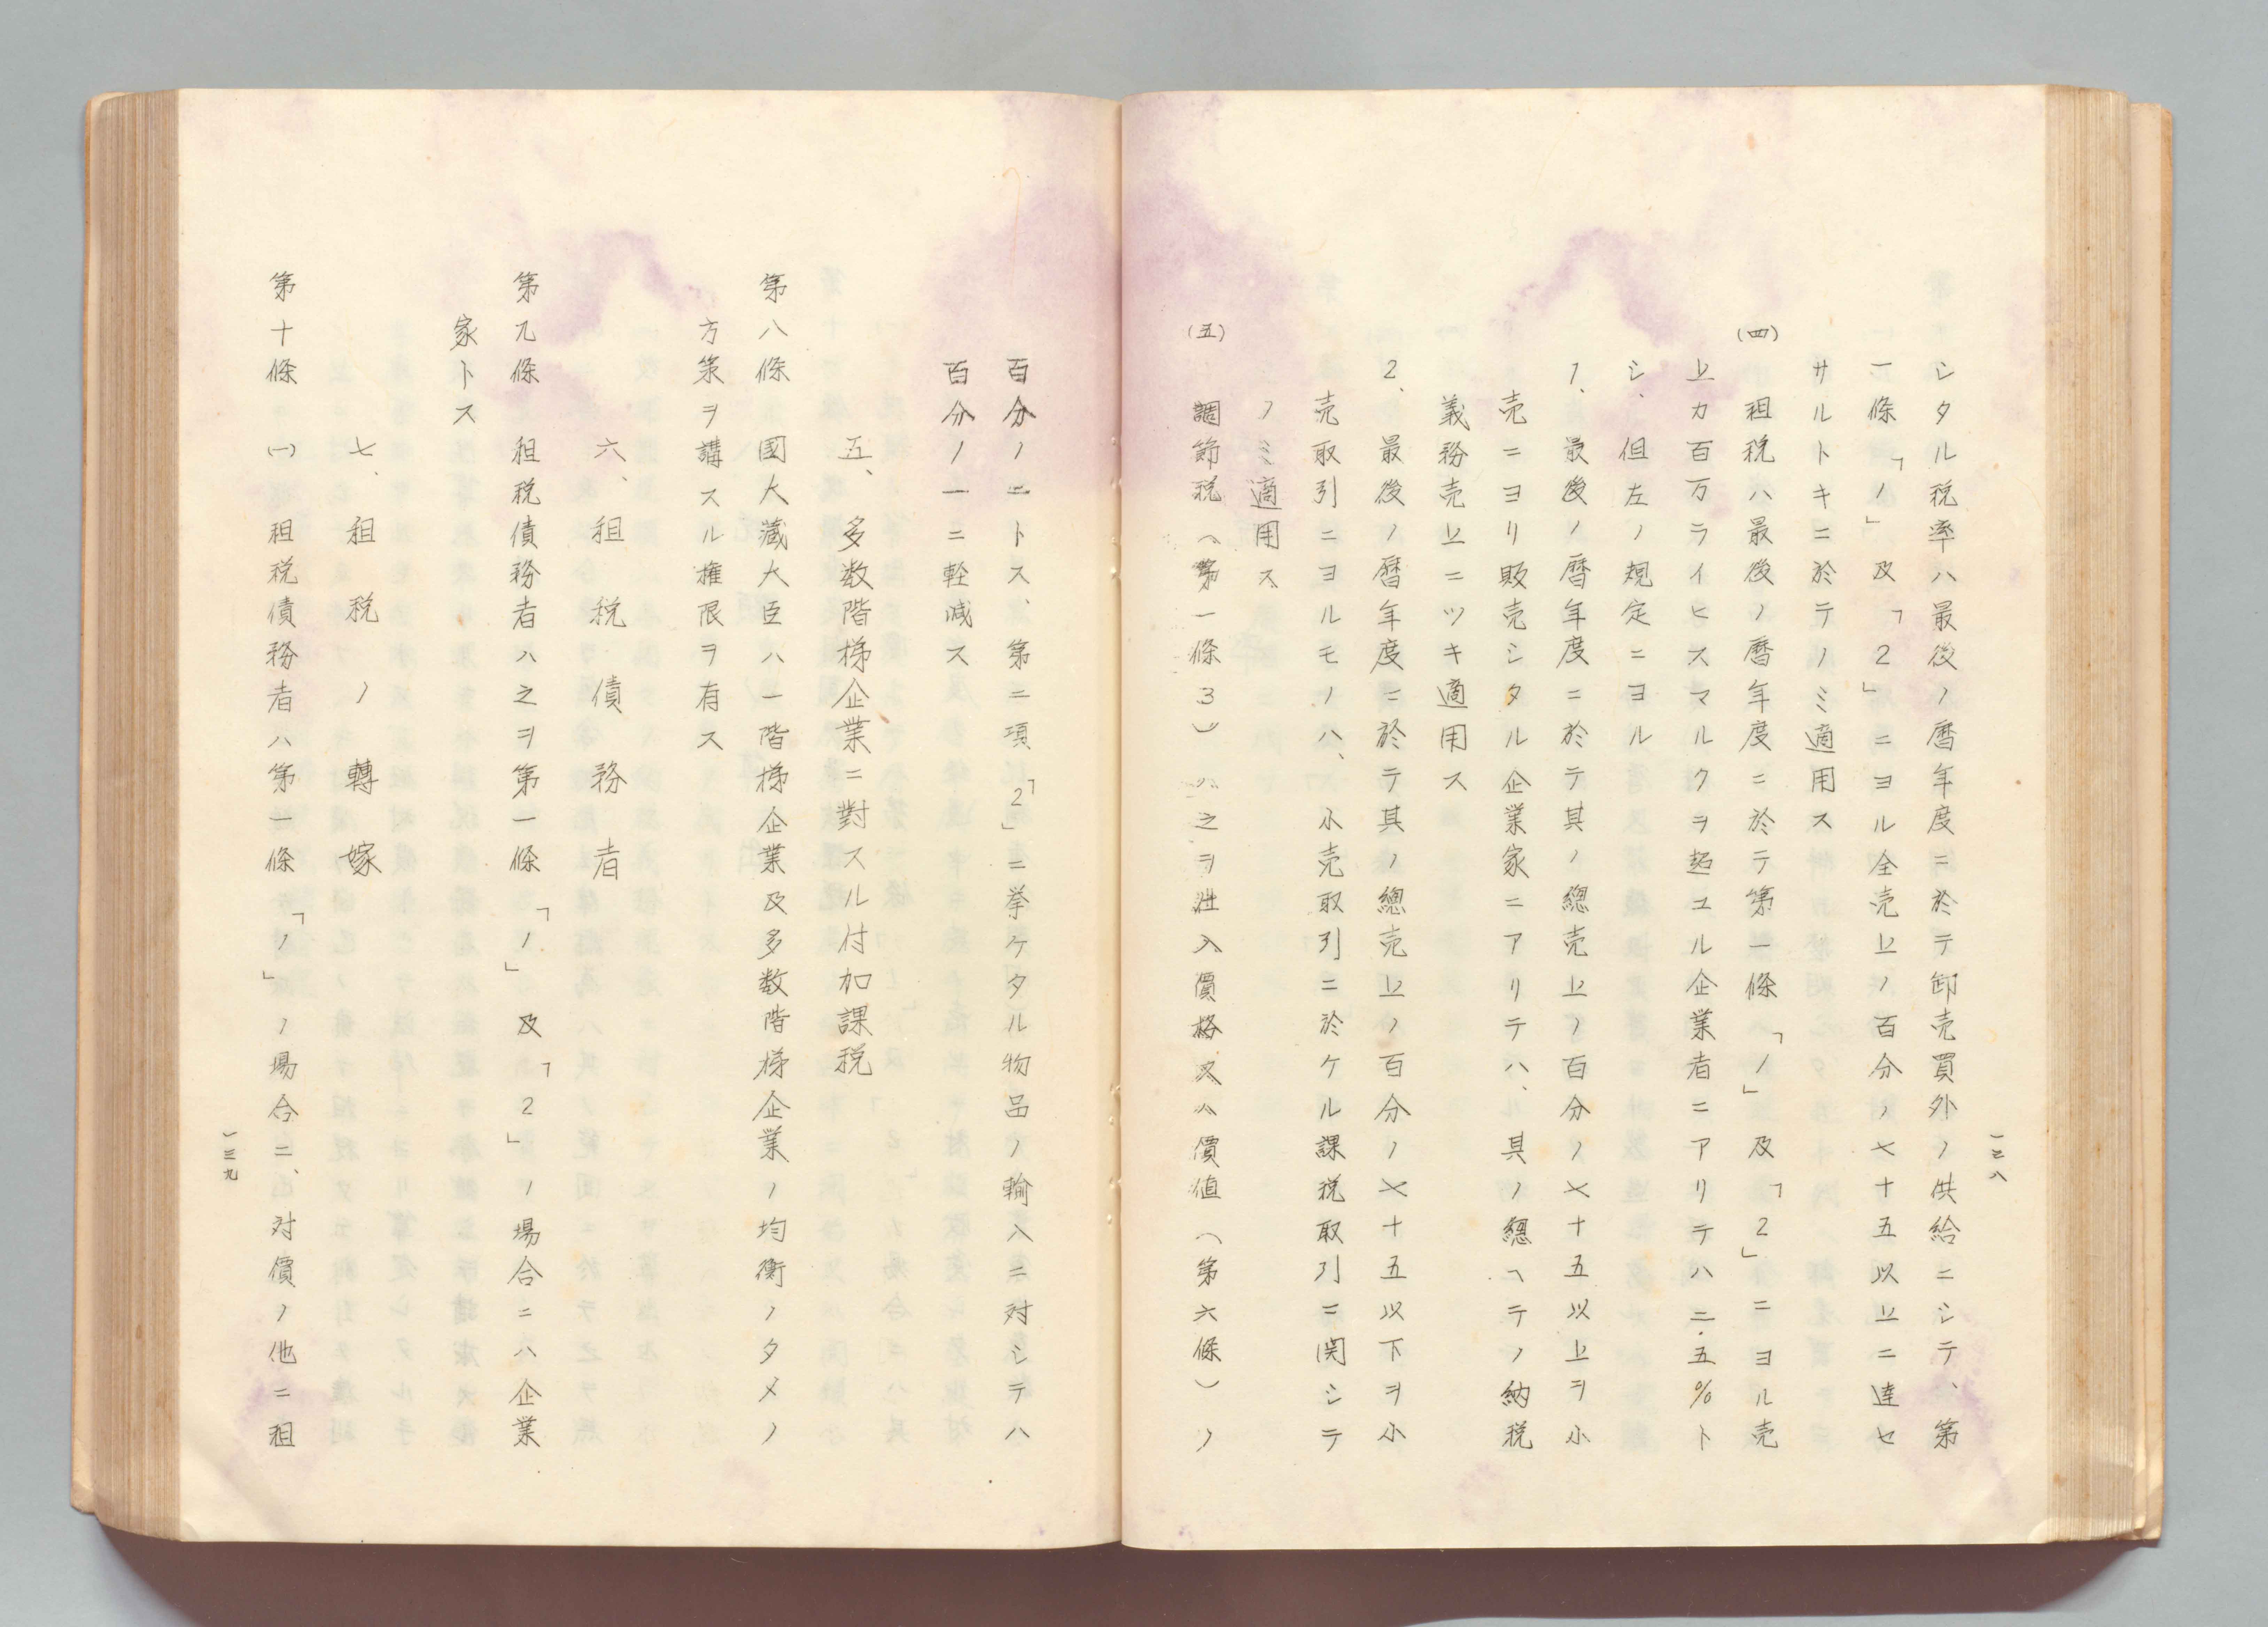 シタル税率ハ最後ノ暦年度ニ於テ卸売買外ノ供給ニシテ、第
一條「1」及「2」ニヨル全売上ノ百分ノ七十五以上ニ達セ
サルトキニ於テノミ適用ス
(四) 租税ハ最後ノ暦年度ニ於テ第一條「1」及「2」ニヨル売
上カ百万ライヒスマルクヲ超ユル企業者ニアリテハ二・五%ト
シ、但左ノ規定ニヨル
1、最後ノ暦年度ニ於テ其ノ總売上ノ百分ノ七十五以上ヲ小
売ニヨリ販売シタル企業家ニアリテハ、其ノ總ヘテノ納税
義務売上ニツキ適用ス
2、最後ノ暦年度ニ於テ其ノ總売上ノ百分ノ七十五以下ヲ小
売取引ニヨルモノハ、小売取引ニ於ケル課税取引ニ関シテ
ノミ適用ス
(五) 調節税(第一條3)ハ之ヲ泄入價格又ハ價値(第六條)ノ
一三八
百分ノ二トス、第二項「2」ニ挙ケタル物品ノ輸入ニ対シテハ
百分ノ一ニ軽減ス
五、多数階梯企業ニ對スル付加課税
第八條 國大藏大臣ハ一階梯企業及多数階梯企業ノ均衡ノタメノ
方策ヲ講スル権限ヲ有ス
六、租税債務者
第九條 租税債務者ハ之ヲ第一條「1」及「2」ノ場合ニハ企業
家トス
七、租税ノ轉嫁
第十條 (一) 租税債務者ハ第一條「1」ノ場合ニ、対價ノ他ニ租
一三九